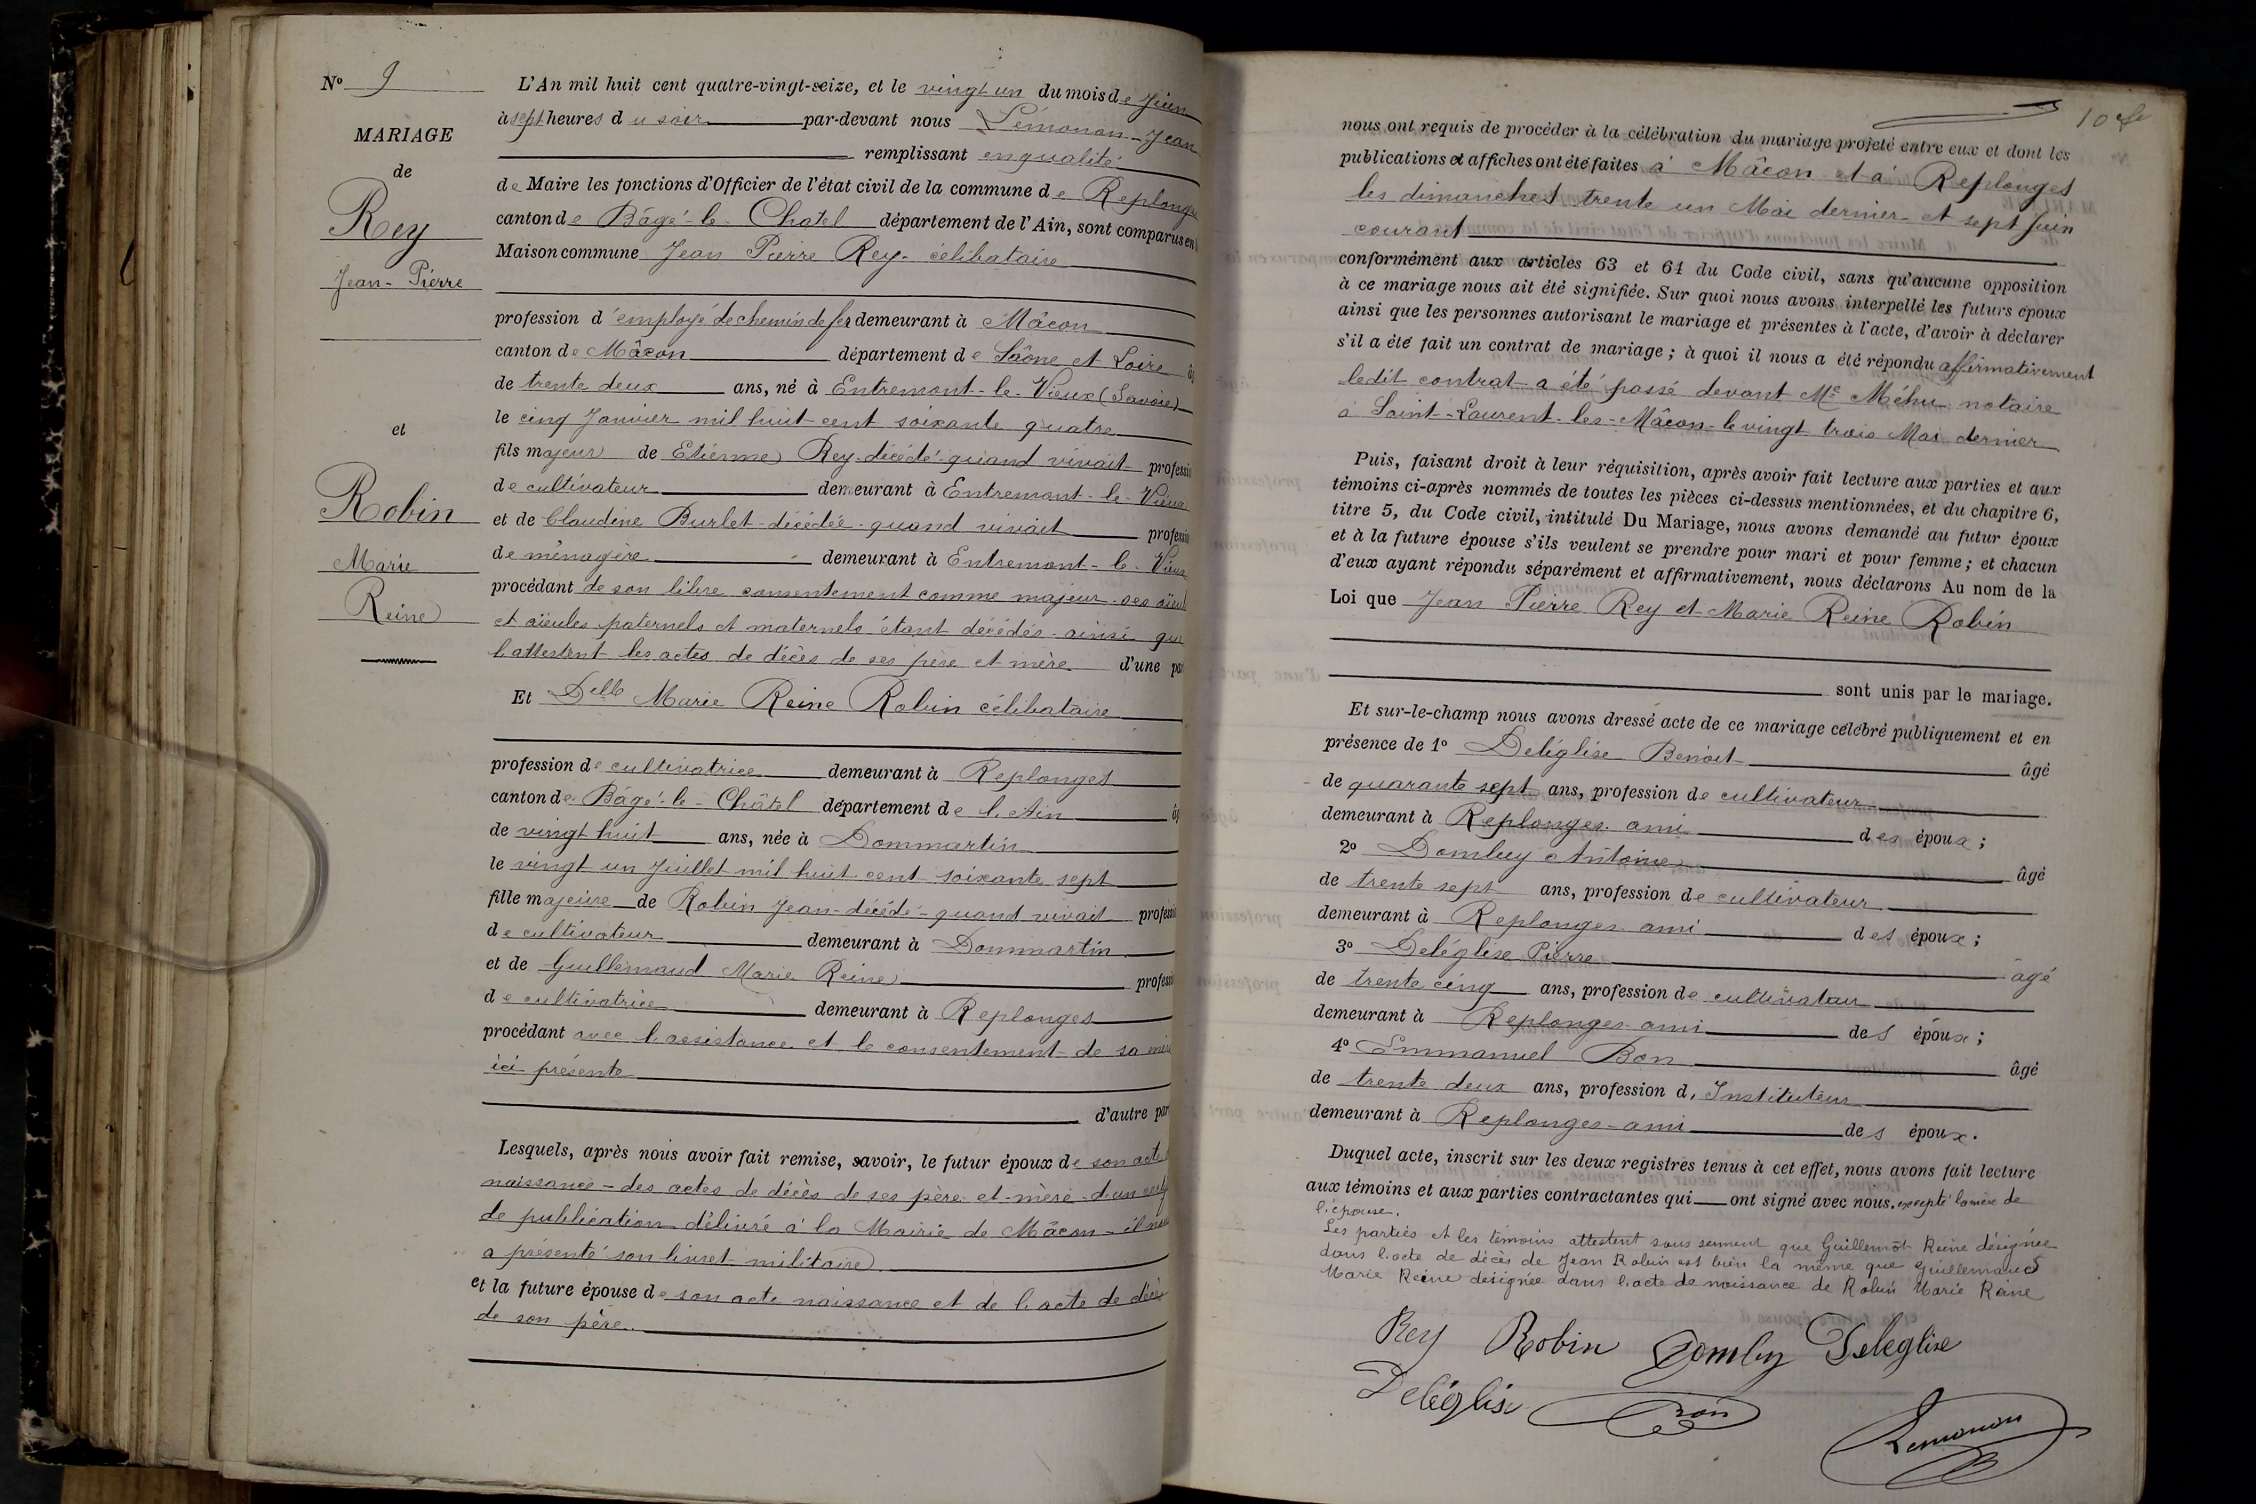 Nº 9
MARIAGE
de
Rey
Jean-Pierre
et
Robin
Marie
Reine
L'An mil huit cent quatre-vingt-seize, et le vingt un du mois de Juin
à sept heures du soir par-devant nous Lémonon Jean
remplissant en qualité
de Maire les fonctions d'Officier de l'état civil de la commune de Replonges
canton de Bâgé-le-Chatel département de l'Ain, sont comparus en
Maison commune Jean Pierre Rey célibataire
profession d'employé de chemin de fer demeurant à Mâcon
canton de Mâcon département de Saône et Loire
de trente deux ans, né à Entremont-le-Vieux (Savoie)
le cinq Janvier mil huit cent soixante quatre
fils majeur de Etienne Rey décédé quand vivait professi
de cultivateur demeurant à Entremont-le-Vieux
et de Claudine Burlet décédée quand vivait professi
de ménagère demeurant à Entremont-le-Vieux
procédant de son libre consentement comme majeur ses aïeuls
et aïeules paternels et maternels étant décédés ainsi que
l'attestent les actes de décès de ses père et mère d'une pa
Et Delle Marie Reine Robin célibataire
profession de cultivatrice demeurant à Replonges
canton de Bâgé-le-Châtel département de l'Ain
de vingt huit ans, née à Dommartin
le vingt un Juillet mil huit cent soixante sept
fille majeure de Robin Jean décédé quand vivait professi
de cultivateur demeurant à Dommartin
et de Guillemaud Marie Reine professi
de cultivatrice demeurant à Replonges
procédant avec l'assistance et le consentement de sa mère
ici présente
d'autre par
Lesquels, après nous avoir fait remise, savoir, le futur époux de son acte
naissance - des actes de décès de ses père et mère - d'un certif
de publication délivré à la Mairie de Mâcon - il nous
a présenté son livret militaire
et la future épouse de son acte naissance et de l'acte de décès
de son père.
nous ont requis de procéder à la célébration du mariage projeté entre eux et dont les
publications et affiches ont été faites à Mâcon et à Replonges
les dimanches trente un Mai dernier et sept Juin
courant
conformément aux articles 63 et 64 du Code civil, sans qu'aucune opposition
à ce mariage nous ait été signifiée. Sur quoi nous avons interpellé les futurs époux
ainsi que les personnes autorisant le mariage et présentes à l'acte, d'avoir à déclarer
s'il a été fait un contrat de mariage ; à quoi il nous a été répondu affirmativement
ledit contrat a été passé devant Me Méhu notaire
à Saint-Laurent-les-Mâcon le vingt trois Mai dernier
Puis, faisant droit à leur réquisition, après avoir fait lecture aux parties et aux
témoins ci-après nommés de toutes les pièces ci-dessus mentionnées, et du chapitre 6,
titre 5, du Code civil, intitulé Du Mariage, nous avons demandé au futur époux
et à la future épouse s'ils veulent se prendre pour mari et pour femme ; et chacun
d'eux ayant répondu séparément et affirmativement, nous déclarons Au nom de la
Loi que Jean Pierre Rey et Marie Reine Robin
sont unis par le mariage.
Et sur-le-champ nous avons dressé acte de ce mariage célébré publiquement et en
présence de 1º Deléglise Benoit âgé
de quarante sept ans, profession de cultivateur
demeurant à Replonges ami des époux ;
2º Dombey Antoine âgé
de trente sept ans, profession de cultivateur
demeurant à Replonges ami des époux ;
3º Deléglise Pierre âgé
de trente cinq ans, profession de cultivateur
demeurant à Replonges ami des époux ;
4º Emmanuel Bon âgé
de trente deux ans, profession d'Instituteur
demeurant à Replonges ami des époux.
Duquel acte, inscrit sur les deux registres tenus à cet effet, nous avons fait lecture
aux témoins et aux parties contractantes qui ont signé avec nous. excepté la mère de
l'épouse.
Les parties et les témoins attestent sous serment que Guillemot Reine désignée
dans l'acte de décès de Jean Robin est bien la même que Guillemaud
Marie Reine désignée dans l'acte de naissance de Robin Marie Reine
Rey Robin Dombey Deleglise
Deléglise Bon
Lemonon